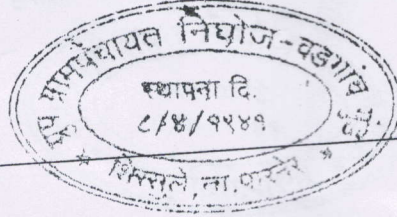 ग्रुप ग्रामपंचायत निघोज-वडगांव गुंड
स्थापना दि.
८/४/१९४१
* शिरसुले, ता. पारनेर *